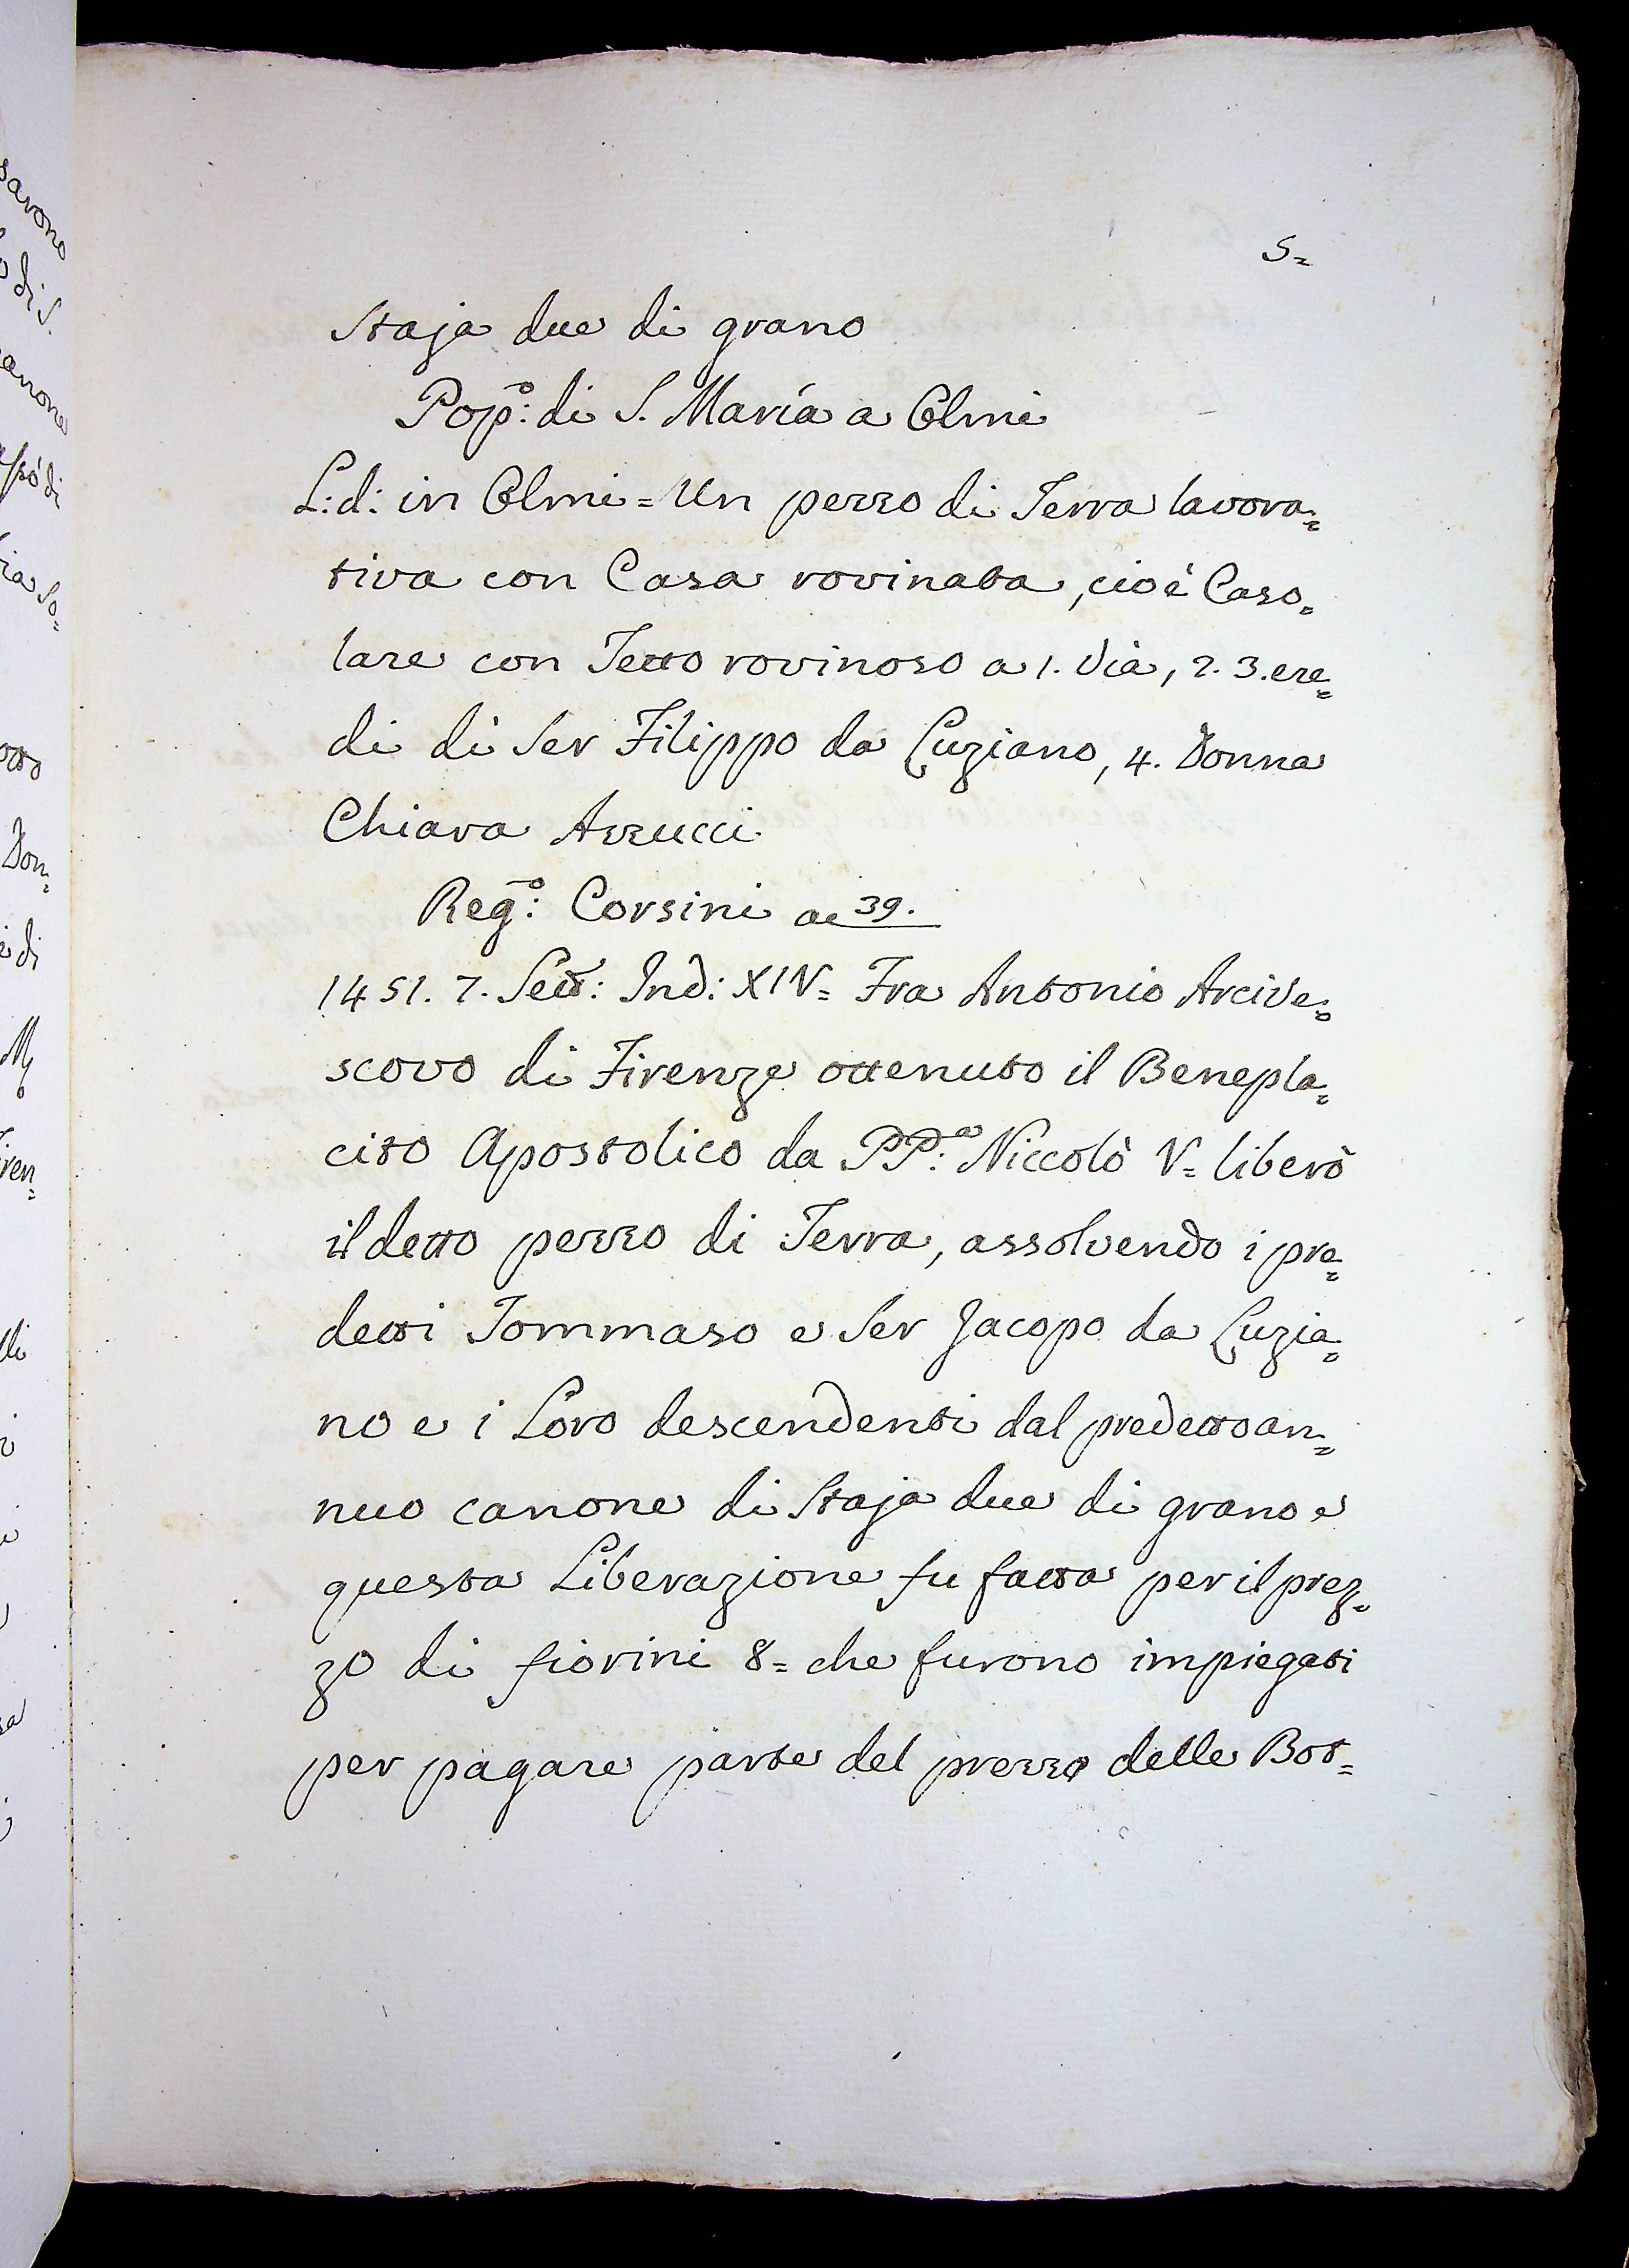 5=
Staja due di grano
Pop.º: di S. Maria a Olmi
L: d: in Olmi = Un pezzo di Terra lavora=
tiva con Casa rovinata, cioè Caso=
lare con Tetto rovinoso a 1. Via, 2. 3. ere=
di di Ser Filippo da Luziano, 4. Donna
Chiara Azzucci
Reg.º: Corsini a 39.
1451. 7. Sett: Ind: XIV= Fra Antonio Arcive=
scovo di Firenze ottenuto il Benepla=
cito Apostolico da PP.ª: Niccolò V= liberò
il detto pezzo di Terra, assolvendo i pre=
detti Tommaso e Ser Jacopo da Luzia=
no e i Loro descendenti dal predetto an=
nuo canone di Staja due di grano e
questa Liberazione fu fatta per il prez=
zo di fiorini 8= che furono impiegati
per pagare parte del prezzo delle Bot=